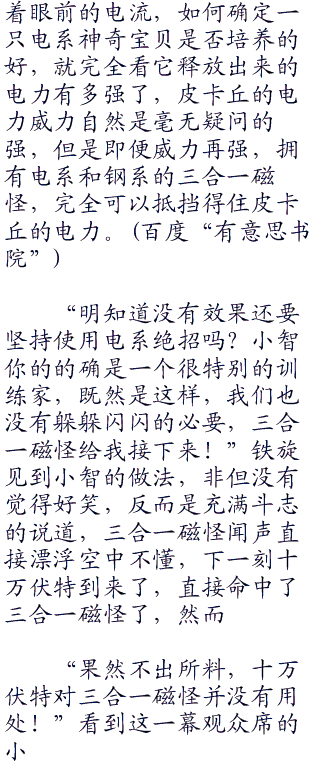 着眼前的电流，如何确定一
只电系神奇宝贝是否培养的
好，就完全看它释放出来的
电力有多强了，皮卡丘的电
力威力自然是毫无疑问的
强，但是即便威力再强，拥
有电系和钢系的三合一磁
怪，完全可以抵挡得住皮卡
丘的电力。(百度“有意思书
院”)
“明知道没有效果还要
坚持使用电系绝招吗？小智
你的的确是一个很特别的训
练家，既然是这样，我们也
没有躲躲闪闪的必要，三合
一磁怪给我接下来！”铁旋
见到小智的做法，非但没有
觉得好笑，反而是充满斗志
的说道，三合一磁怪闻声直
接漂浮空中不懂，下一刻十
万伏特到来了，直接命中了
三合一磁怪了，然而
“果然不出所料，十万
伏特对三合一磁怪并没有用
处！”看到这一幕观众席的
小